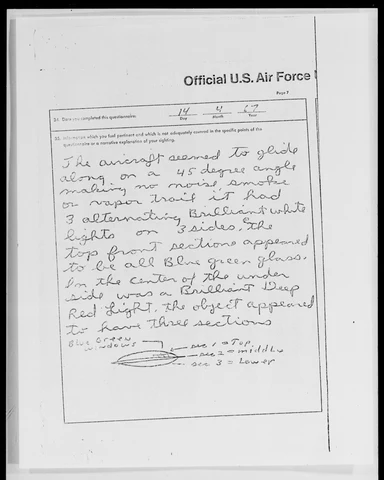 Official U.S. Air Force
Page 7
34. Date you completed this questionnaire: 14 4 67
Day Month Year
35. Information which you feel pertinent and which is not adequately covered in the specific points of the
questionnaire or a narrative explanation of your sighting.
The aircraft seemed to glide
along on a 45 degree angle
making no noise, smoke
or vapor trail it had
3 alternating Brilliant white
lights on 3 sides, the
top front sections appeared
to be all Blue green glass.
In the center of the under
side was a Brilliant Deep
Red Light. the object appeared
to have three sections
Blue Green
windows
sec 1 = Top
sec 2 = middle
sec 3 = Lower